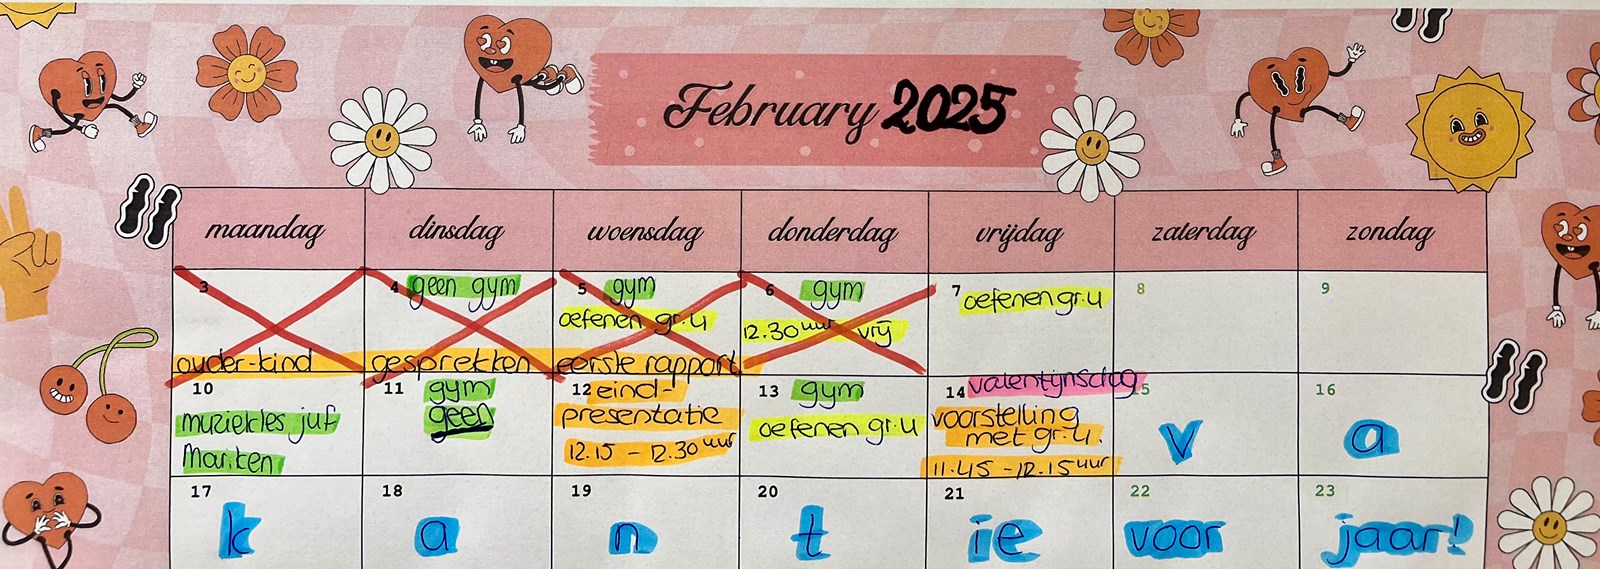 February 2025
maandag dinsdag woensdag donderdag vrijdag zaterdag zondag
3
4 geen gym
5 gym
oefenen gr.4
6 gym
12.30 uur vrij
7 oefenen gr.4
8
9
ouder-kind gesprekken eerste rapport
10
muziekles juf
Mariken
11 gym
geen
12 eind-
presentatie
12.15 - 12.30 uur
13 gym
oefenen gr.4
14 valentijnsdag
voorstelling
met gr.4.
11.45 - 12.15 uur
15
v
16
a
17
k
18
a
19
n
20
t
21
ie
22
voor
23
jaar!